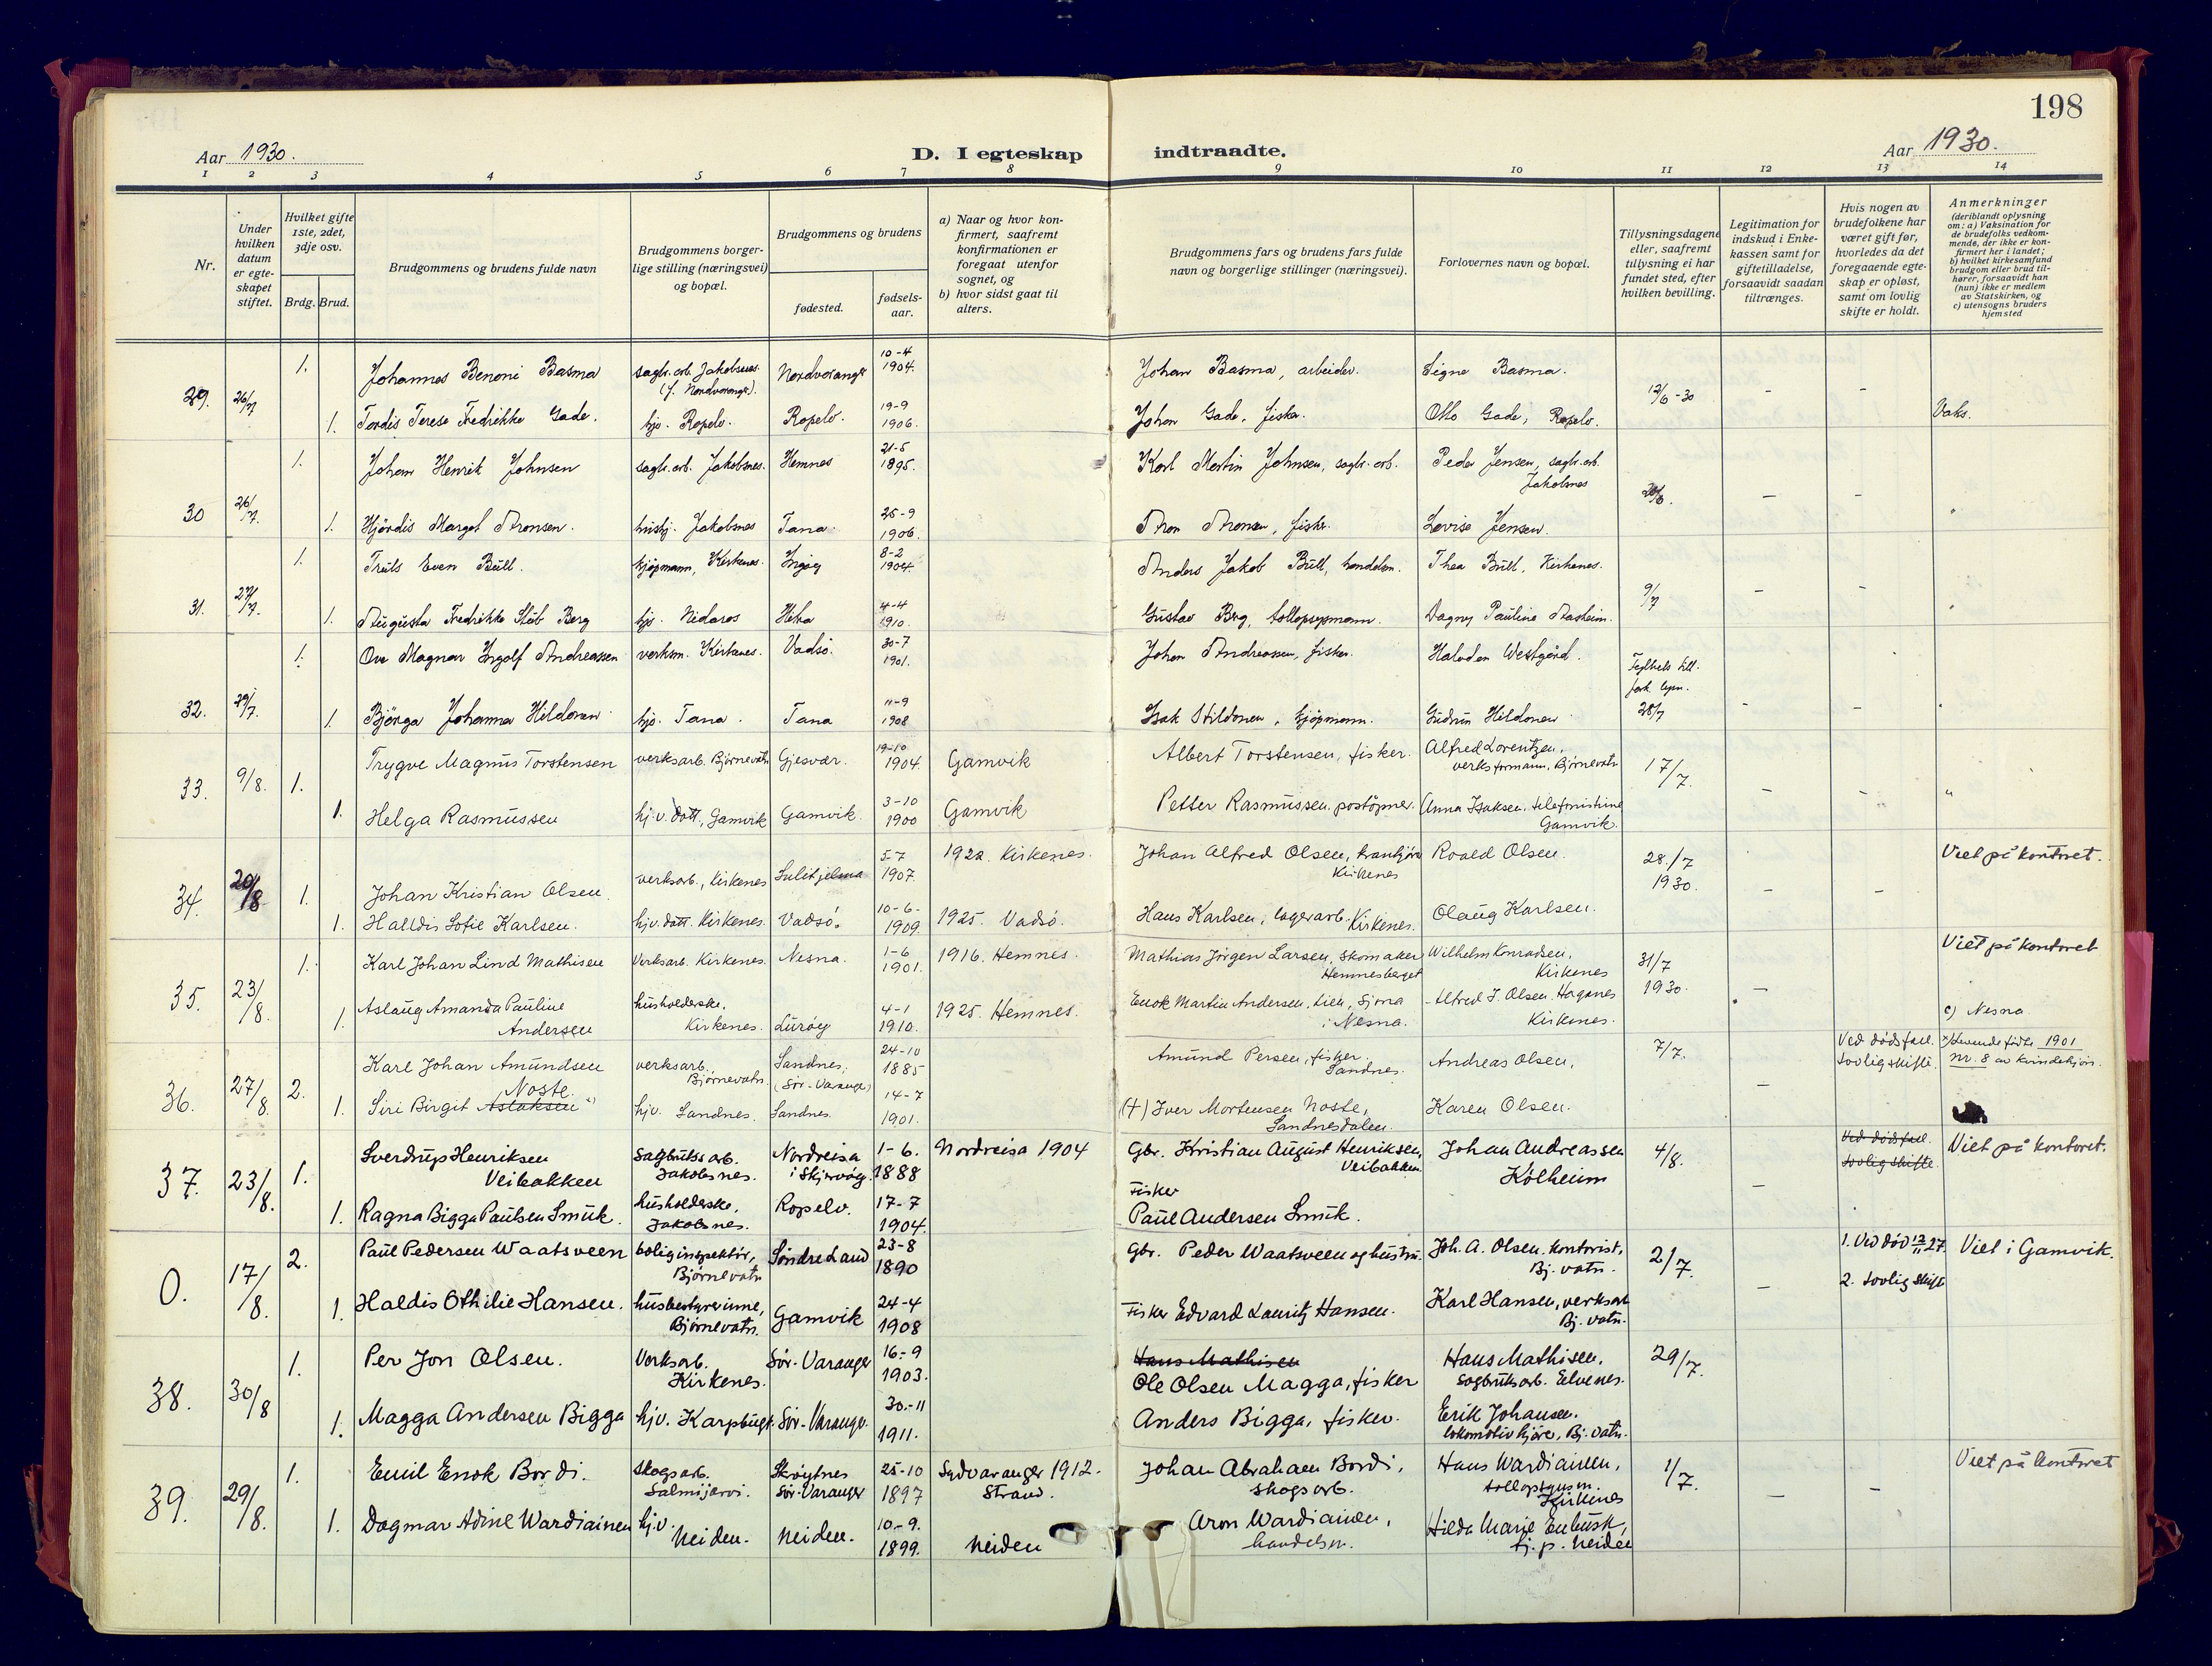 198
Aar 1930.
D. I egteskap indtraadte.
Aar 1930.
1 2 3 4 5 6 7 8 9 10 11 12 13 14
Nr.
Under hvilken datum er egte-skapet stiftet.
Hvilket gifte 1ste, 2det, 3dje osv.
Brdg. Brud.
Brudgommens og brudens fulde navn
Brudgommens borger-lige stilling (næringsvei) og bopæl.
Brudgommens og brudens
fødested.
fødsels-aar.
a) Naar og hvor kon-firmert, saafremt konfirmationen er foregaat utenfor sognet, og
b) hvor sidst gaat til alters.
Brudgommens fars og brudens fars fulde navn og borgerlige stillinger (næringsvei).
Forlovernes navn og bopæl.
Tillysningsdagene eller, saafremt tillysning ei har fundet sted, efter hvilken bevilling.
Legitimation for indskud i Enke-kassen samt for giftetilladelse, forsaavidt saadan tiltrænges.
Hvis nogen av brudefolkene har været gift før, hvorledes da det foregaaende egte-skap er opløst, samt om lovlig skifte er holdt.
Anmerkninger
(deriblandt oplysning om: a) Vaksination for de brudefolks vedkom-mende, der ikke er kon-firmert her i landet; b) hvilket kirkesamfund brudgom eller brud til-hører, forsaavidt han (hun) ikke er medlem av Statskirken, og c) utensogns bruders hjemsted
29. 26/7 1. Johannes Benoni Basma sagbr.arb. Jakobsnes. (f. Nordvarangr). Nordvarangr 10-4 1904. Johan Basma, arbeider. Signe Basma. 12/6-30 - -
1. Tordis Terese Fredrikke Gade. hjv. Ropelv. Ropelv. 19-9 1906. Johan Gade, fisker. Otto Gade, Ropelv. Vaks.
30 26/7. 1. Johan Henrik Johnsen sagbr.arb. Jakobsnes. Hemnes 21-5 1895. Karl Martin Johnsen, sagbr.arb. Peder Jensen, sagbr.arb. Jakobsnes - -
1. Hjördis Margot Aronsen. hushj. Jakobsnes Tana. 25-9 1906. Aron Aronsen, fisker. Lovise Jensen. "
31. 27/7. 1. Truls Even Bull. kjöpmann, Kirkenes. Ingöy 8-2 1904 Anders Jakob Bull, handelsm. Thea Bull, Kirkenes. 9/7 - -
1. Augusta Fredrikke Stub Berg hjv. Nidaros Hitra 4-4 1910. Gustav Berg, tollopsynsmann. Dagny Pauline Aasheim. "
32. 29/7. 1. Ove Magnar Ingolf Andreassen verksm. Kirkenes. Vadsö. 30-7 1901. Johan Andreassen, fisker. Halvdan Westgård. 28/7 - -
1. Björga Johanna Hildonen hjv. Tana. Tana 11-9 1908 Isak Hildonen, kjöpmann. Gudrun Hildonen "
33. 9/8. 1. Trygve Magnus Torstensen verksarb. Bjørnevatn Gjesvær. 19-10 1904. Gamvik Albert Torstensen, fisker. Alfred Lorentzen, verksformann, Bjørnevatn 17/7. - -
1. Helga Rasmussen hj.v. datt., Gamvik Gamvik. 3-10 1900 Gamvik Petter Rasmussen. postöpner. Anna Isaksen, telefonistinne Gamvik. "
34. 20/8 1. Johan Kristian Olsen. verksarb., Kirkenes Sulitjelma 5-7 1907. 1922. Kirkenes. Johan Alfred Olsen, Kirkenes Roald Olsen. 28./7 1930. - - Viet på kontoret.
1. Halldis Sofie Karlsen. hjv. datt. Kirkenes. Vadsö. 10-6- 1909. 1925. Vadsö. Hans Karlsen, lagerarb. Kirkenes. Olaug Karlsen.
35. 23/8. 1. Karl Johan Lind Mathisen Verksarb. Kirkenes. Nesna. 1-6 1901. 1916. Hemnes. Mathias Jörgen Larsen, skomaker Hemnesberget Wilhelm Konradsen, Kirkenes 31/7 1930. - Viet på kontoret
1. Aslaug Amanda Pauline Andersen husholderske, Kirkenes. Luröy 4-1 1910. 1925. Hemnes. Enok Martin Andersen. Lien, Sjona i Nesna. Alfred J. Olsen. Haganes Kirkenes. c) Nesna
36. 27/8. 2. Karl Johan Amundsen verksarb. Bjørnevatn. Sandnes, (Sør-Varanger) 24-10 1885 Amund Persen, fisker. Sandnes. Andreas Olsen, 7/7. - Ved dødsfall. Lovlig skifte. x) Levende fødte 1901 nr. 8 av kvindekjön.
1. Siri Birgit Aslaksen Noste. x) hjv. Sandnes. Sandnes. 14-7 1901. (+) Iver Mortensen Noste, Sandnesdalen. Karen Olsen.
37. 23/8. 1. Sverdrup Henriksen Veibakken Sagbruksarb. Jakobsnes. Nordreisa i Skjervøy. 1-6. 1888 Nordreisa 1904 Gbr. Kristian August Henriksen, Veibakken Johan Andreassen Kolheim 4/8. - Ved dødsfall. Lovlig skifte. Viet på kontoret.
1. Ragna Bigga Paulsen Smuk. husholderske, Jakobsnes. Ropelv. 17-7 1904. Fisker Paul Andersen Smuk.
0. 17/8. 2. Paul Pedersen Waatsveen boliginspektör, Bjørnevatn Søndre Land 23-8 1890 Gbr. Peder Waatsveen og hustru. Joh. A. Olsen. kontorist, Bj. vatn. 2/7. - 1. Ved död 12/11 27 2. Lovlig skifte Viet i Gamvik.
1. Haldis Othilie Hansen. husbestyrerinne, Bjørnevatn. Gamvik 24-4 1908 Fisker Edvard Lauritz Hansen. Karl Hansen, verksarb Bj. vatn.
38. 30/8 1. Per Jon Olsen. Verksarb. Kirkenes. Sør-Varanger 16-9 1903. Hans Mathisen Ole Olsen Magga, fisker Hans Mathisen, sagbruksarb. Elvenes. 29/7.
1. Magga Andersen Bigga hjv. Karpbugt. Sør-Varanger. 30-11 1911. Anders Bigga, fisker. Erik Johansen. lokomotivkjører, Bj. vatn.
39. 29/8. 1. Emil Enok Bordi. skogsarb. Salmijarvi. Skrøytnes Sør-Varanger 25-10 1897 Sydvaranger 1912. Strand. Johan Abraham Bordi, skogsarb. Hans Wardiainen, tollopsynsm. Kirkenes 1/7. - - Viet på kontoret
1. Dagmar Adine Wardiainen hj.v. Neiden. Neiden. 10-9. 1899. Neiden Aron Wardiainen, handelsm. Hilda Marie Enbusk, tj. p. Neiden